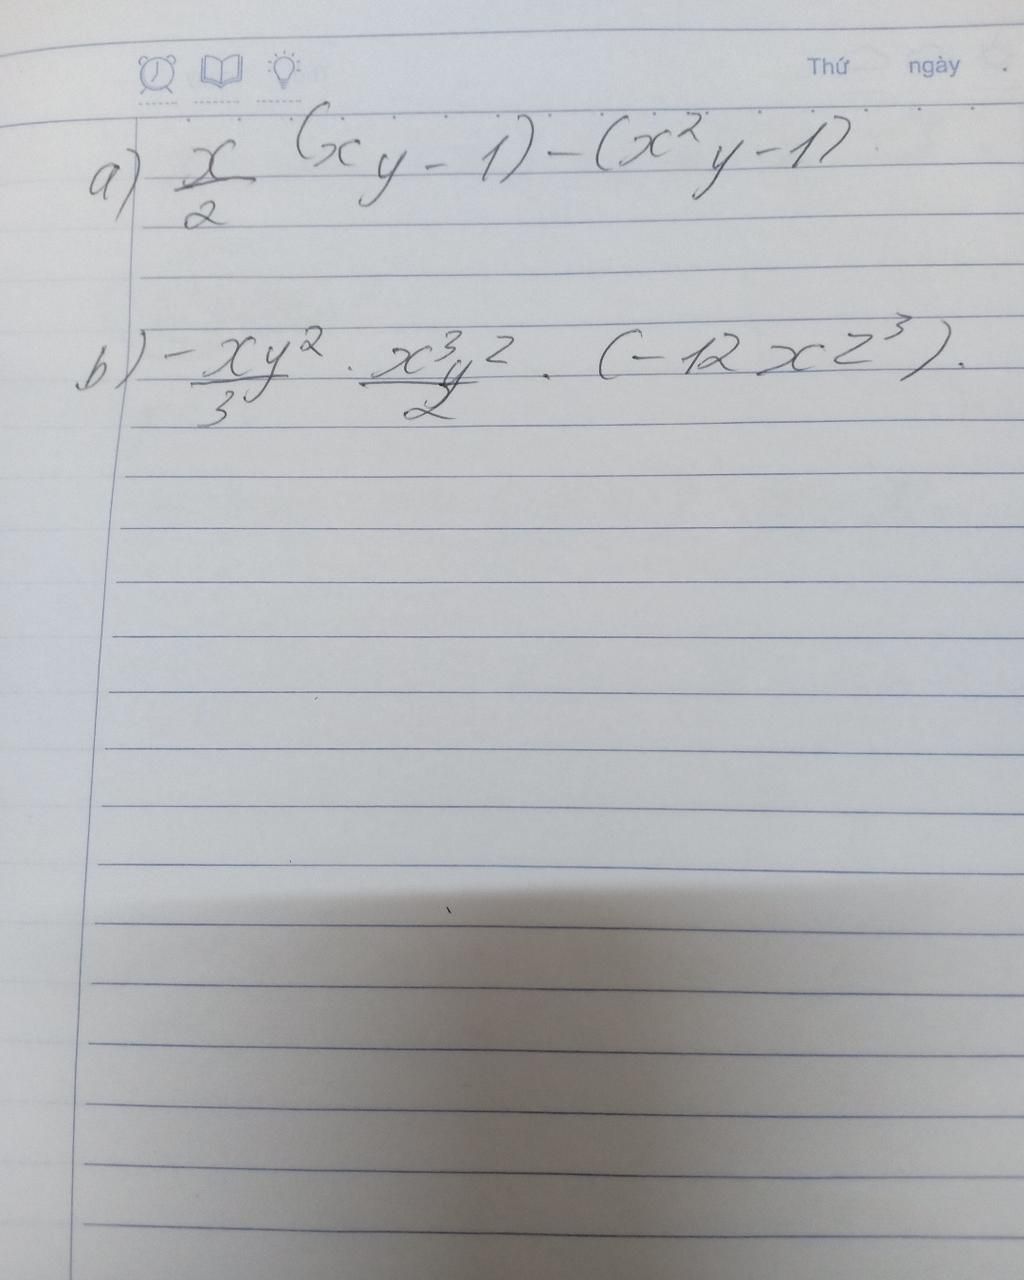 Thứ ngày .
a) x/2 (xy - 1) - (x²y - 1)
b) - xy²/3 . x³yz/2 . (- 12xz³).